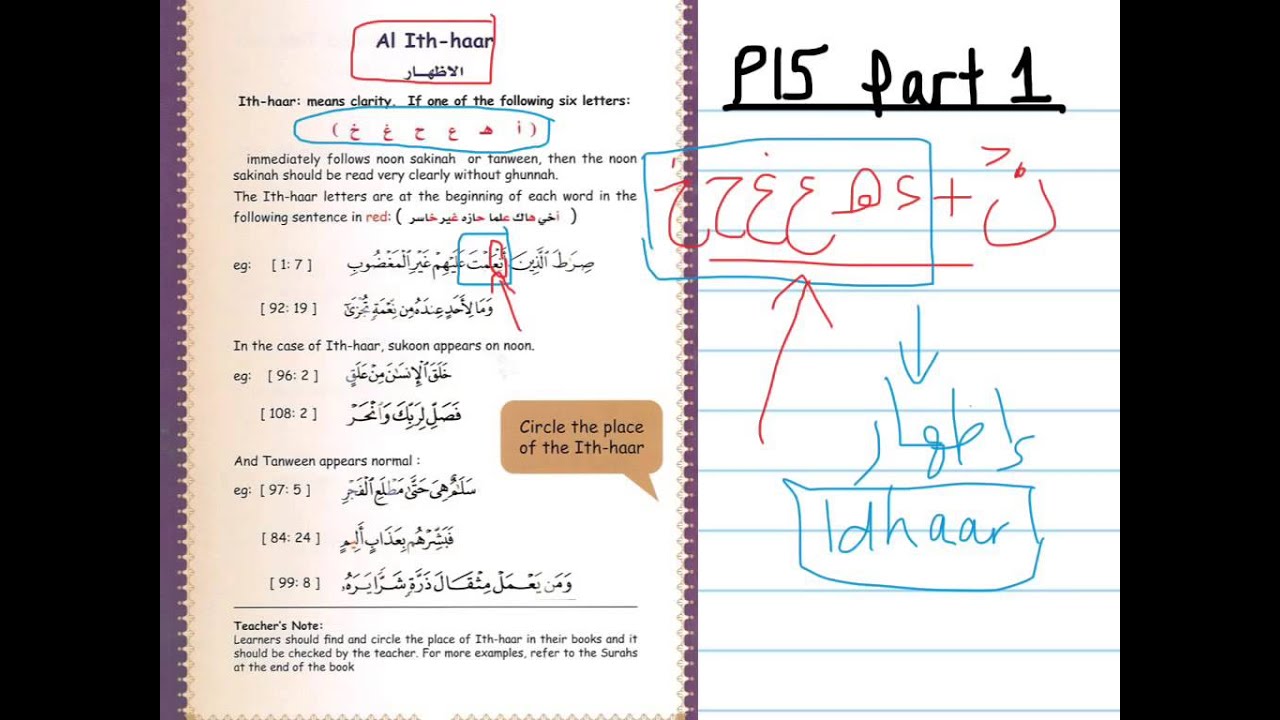 Al Ith-haar
الاظهار
Ith-haar: means clarity. If one of the following six letters:
( أ هـ ع ح غ خ )
immediately follows noon sakinah or tanween, then the noon
sakinah should be read very clearly without ghunnah.
The Ith-haar letters are at the beginning of each word in the
following sentence in red: ( أخي هاك علما حازه غير خاسر )
eg: [ 1: 7 ] صِرَٰطَ ٱلَّذِينَ أَنۡعَمۡتَ عَلَيۡهِمۡ غَيۡرِ ٱلۡمَغۡضُوبِ
[ 92: 19 ] وَمَا لِأَحَدٍ عِندَهُۥ مِن نِّعۡمَةٖ تُجۡزَىٰٓ
In the case of Ith-haar, sukoon appears on noon.
eg: [ 96: 2 ] خَلَقَ ٱلۡإِنسَٰنَ مِنۡ عَلَقٍ
[ 108: 2 ] فَصَلِّ لِرَبِّكَ وَٱنۡحَرۡ
And Tanween appears normal :
eg: [ 97: 5 ] سَلَٰمٌ هِيَ حَتَّىٰ مَطۡلَعِ ٱلۡفَجۡرِ
[ 84: 24 ] فَبَشِّرۡهُم بِعَذَابٍ أَلِيمٍ
[ 99: 8 ] وَمَن يَعۡمَلۡ مِثۡقَالَ ذَرَّةٖ شَرّٗا يَرَهُۥ
Circle the place
of the Ith-haar
Teacher's Note:
Learners should find and circle the place of Ith-haar in their books and it
should be checked by the teacher. For more examples, refer to the Surahs
at the end of the book
P15 Part 1
نْ + ء هـ ع غ ح خ
اظهار
Idhaar